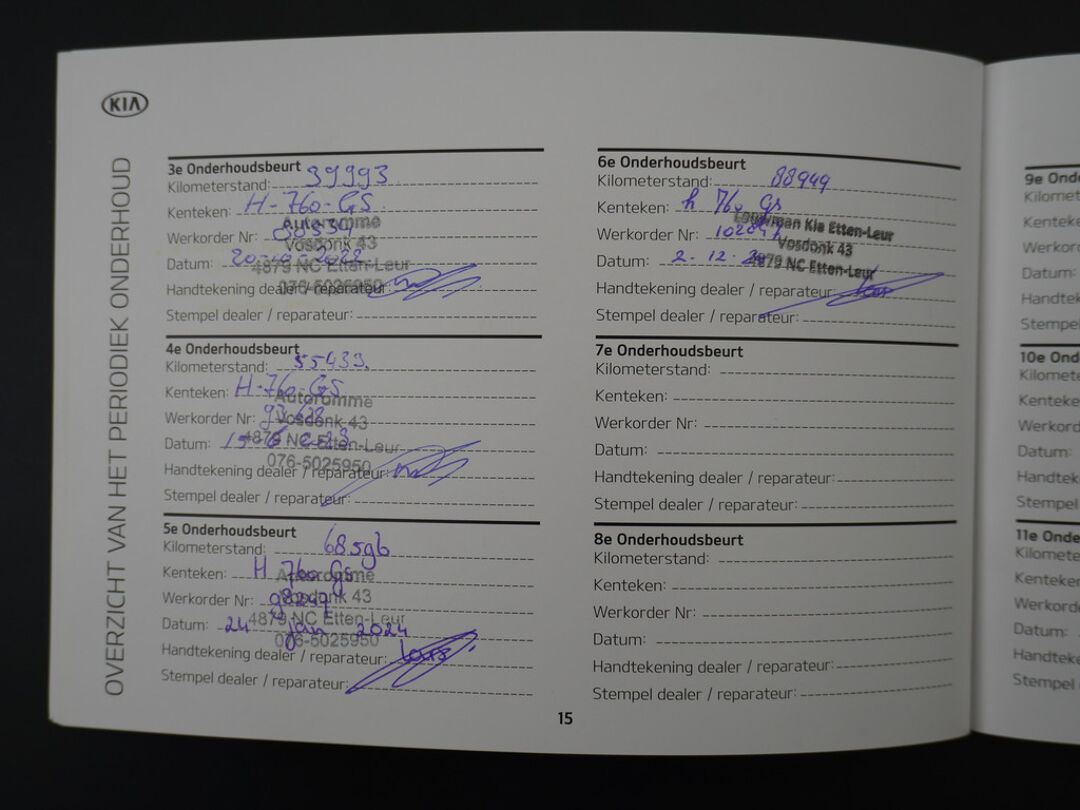 KIA
OVERZICHT VAN HET PERIODIEK ONDERHOUD
3e Onderhoudsbeurt
Kilometerstand: 39993
Kenteken: H-760-GS
Autoromme
Werkorder Nr:
Vosdonk 43
Datum: 20-10-2022
4879 NC Etten-Leur
Handtekening dealer / reparateur:
076-5025950
Stempel dealer / reparateur:
4e Onderhoudsbeurt
Kilometerstand: 55433
Kenteken: H-760-GS
Autoromme
Werkorder Nr:
Vosdonk 43
Datum:
4879 NC Etten-Leur
076-5025950
Handtekening dealer / reparateur:
Stempel dealer / reparateur:
5e Onderhoudsbeurt
Kilometerstand: 68596
Kenteken: H 760 GS
Autoromme
Werkorder Nr: 98249
Vosdonk 43
Datum: 24 jan 2024
4879 NC Etten-Leur
076-5025950
Handtekening dealer / reparateur: Lars
Stempel dealer / reparateur:
15
6e Onderhoudsbeurt
Kilometerstand: 88949
Kenteken: h 760 gs
Louwman Kia Etten-Leur
Werkorder Nr:
Vosdonk 43
Datum: 2-12-
4879 NC Etten-Leur
Handtekening dealer / reparateur:
Stempel dealer / reparateur:
7e Onderhoudsbeurt
Kilometerstand:
Kenteken:
Werkorder Nr:
Datum:
Handtekening dealer / reparateur:
Stempel dealer / reparateur:
8e Onderhoudsbeurt
Kilometerstand:
Kenteken:
Werkorder Nr:
Datum:
Handtekening dealer / reparateur:
Stempel dealer / reparateur:
9e Ond
Kilomet
Kenteke
Werkor
Datum:
Handtek
Stempe
10e Ond
Kilomete
Kenteke
Werkord
Datum:
Handtek
Stempel
11e Onde
Kilomete
Kenteke
Werkord
Datum:
Handteke
Stempel